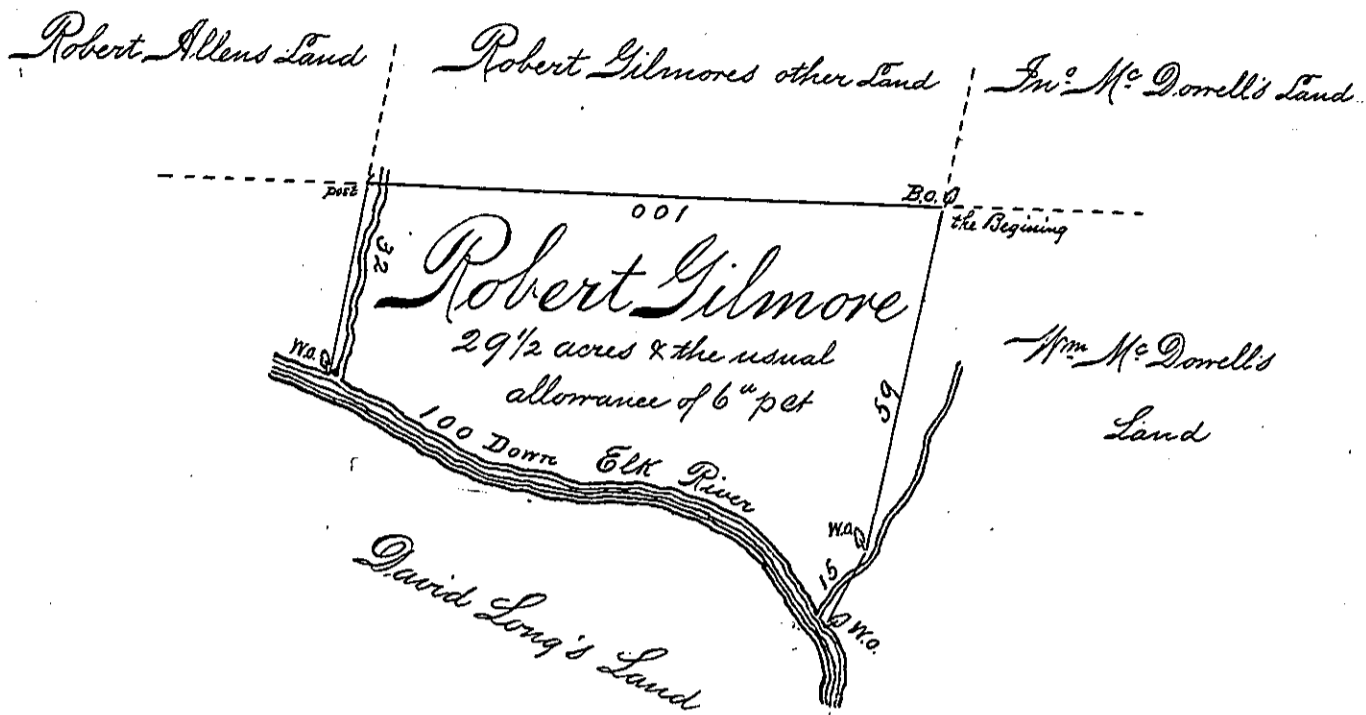 Robert Allens Land
Robert Gilmores other Land
Jnº. Mc. Dowell's Land
post
B.O.
the Begining
100
32
Robert Gilmore
29 1/2 acres & the usual
allowance of 6 pct
W.O.
59
Wm Mc. Dowell's
Land
100 Down Elk River
W.O.
15
W.O.
David Long's Land